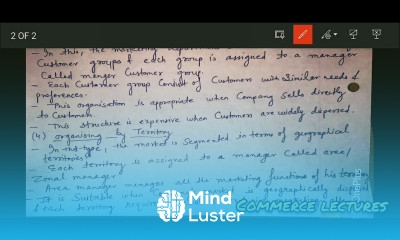 2 OF 2
- In this, the
Customer groups & each group is assigned to a manager
Called Customer group.
- Each Customer group Consist of Customers with Similar needs &
preferences.
- This organisation is appropriate when Company Sells directly
to Customers.
- This Structure is expensive when Customers are widely dispersed.
(4) organising by Territory
- In this type, the market is Segmented in terms of geographical
territories.
- Each territory is assigned to a manager Called area/
Zonal manager
- Area manager manages all the marketing functions of his territory
- It is Suitable when is geographically
& each territory
Mind
Luster
COMMERCE LECTURES